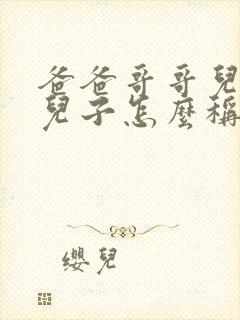 爸爸哥哥兒
兒子怎麼稱
纓兒